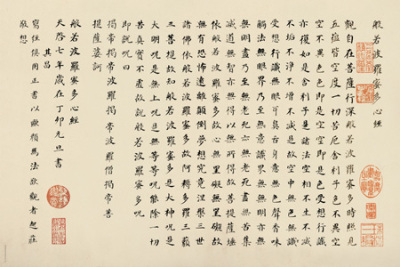 般若波羅蜜多心經
觀自在菩薩行深般若波羅蜜多時照見
五蘊皆空度一切苦厄舍利子色不異空
空不異色色即是空空即是色受想行識
亦復如是舍利子是諸法空相不生不滅
不垢不淨不增不減是故空中無色無
受想行識無眼耳鼻舌身意無色聲香味
觸法無眼界乃至無意識界無無明亦無
無明盡乃至無老死亦無老死盡無苦集
滅道無智亦無得以無所得故菩提薩埵
依般若波羅蜜多故心無罣礙無罣礙故
無有恐怖遠離顛倒夢想究竟涅槃三世
諸佛依般若波羅蜜多故阿耨多羅三藐
三菩提故知般若波羅蜜多是大神咒是
大明咒是無上咒是無等等咒能除一切
苦真實不虛故說般若波羅蜜多咒
即說咒曰
揭帝揭帝波羅揭帝波羅僧揭帝菩
提薩婆訶
般若波羅蜜多心經
天啓七年歲在丁卯元旦書
其昌
寫經須用正書以歐顏為法欲觀者起莊
敬想